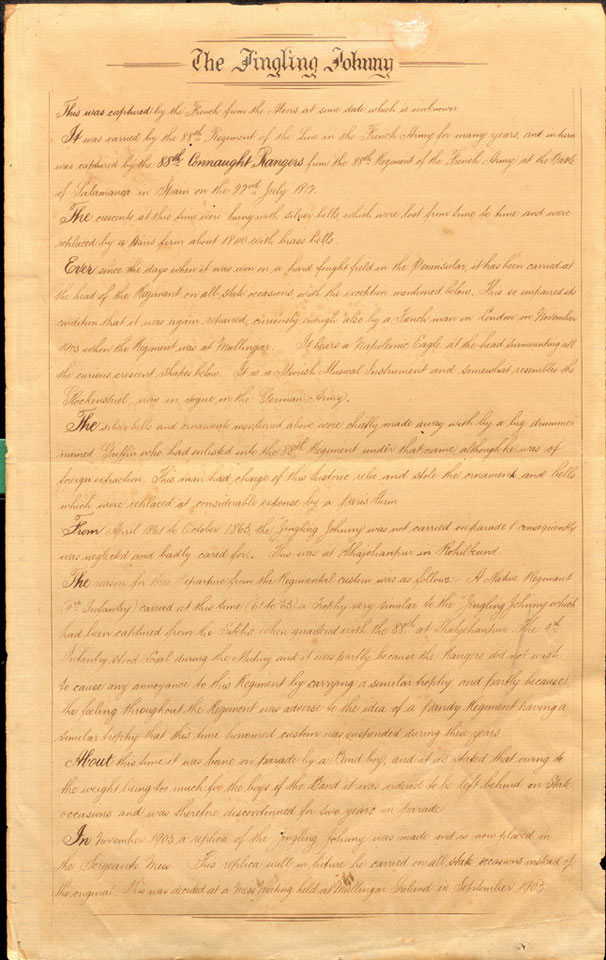 The Jingling Johnny
This was captured by the French from the Moors at some date which is unknown.
It was carried by the 88th Regiment of the Line in the French Army for many years, and in turn
was captured by the 88th Connaught Rangers from the 88th Regiment of the French Army at the Battle
of Salamanca in Spain on the 22nd July 1812.
The crescents at this time were hung with silver bells, which were lost from time to time and were
replaced by a Paris firm about 1840 with brass bells.
Ever since the days when it was won on a hard fought field in the Peninsular, it has been carried at
the head of the Regiment on all state occasions with the exception mentioned below. This so impaired its
condition that it was again repaired, curiously enough also by a French man in London in November
1903 when the Regiment was at Mullingar. It bears a Napoleonic Eagle at the head surmounting all
the curious crescent shapes below. It is a Moorish Musical Instrument and somewhat resembles the
Glockenspiel, now in vogue in the German Army.
The silver bells and ornaments mentioned above were chiefly made away with by a big drummer
named Griffin who had enlisted into the 88th Regiment under that name, although he was of
foreign extraction. This man had charge of this historic relic and stole the ornaments and bells
which were replaced at considerable expense by a Paris Firm
From April 1861 to October 1863 the Jingling Johnny was not carried on parade & consequently
was neglected and badly cared for. This was at Shajehanpur in Rohilkund
The reason for this Departure from the Regimental custom was as follows. A Native Regiment
Infantry) carried at this time (61 to 63) a trophy very similar to the "Jingling Johnny" which
had been captured from the when quartered with the 88th at Shahjehanpur. The
Infantry stood loyal during the Mutiny and it was partly because the Rangers did not wish
to cause any annoyance to this Regiment by carrying a similar trophy, and partly because
the feeling throughout the Regiment was adverse to the idea of a Pandy Regiment having a
similar trophy that this time honoured custom was suspended during these years
About this time it was borne on parade by a Band boy, and it is stated that owing to
the weight being too much for the boys of the Band it was ordered to be left behind on State
occasions and was therefore discontinued for two years on parade
In November 1903 a replica of the Jingling Johnny was made and is now placed in
the Sergeants Mess. This replica will in future be carried on all state occasions instead of
the original. This was decided at a Mess Meeting held at Mullingar Ireland in September 1903.